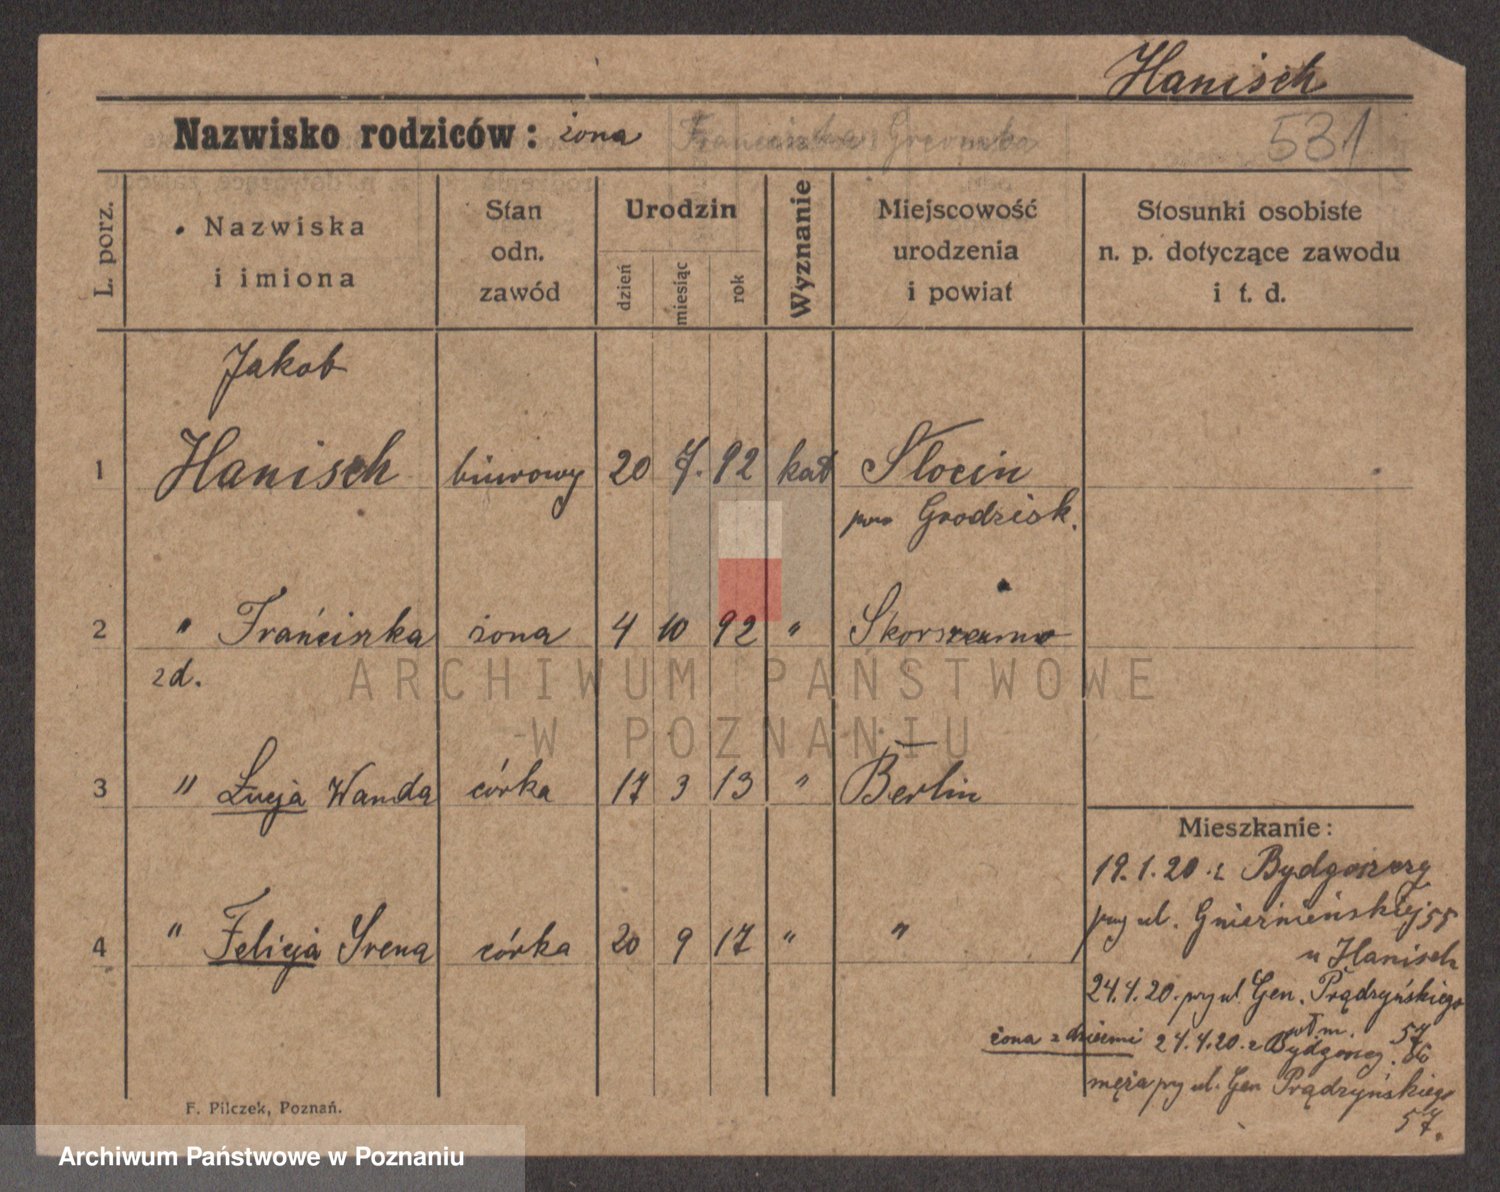 Hanisch
Nazwisko rodziców: żona Franciszka
531
L. porz.
Nazwiska
i imiona
Stan
odn.
zawód
Urodzin
dzień
miesiąc
rok
Wyznanie
Miejscowość
urodzenia
i powiat
Stosunki osobiste
n. p. dotyczące zawodu
i t. d.
Jakob
1 Hanisch biurowy 20 7. 92 kat Słocin
pow Grodzisk.
2 " Franciszka żona 4 10 92 "
zd.
3 " Łucja Wanda córka 17 3 13 " Berlin
4 " Felicja Irena córka 20 9 17 " "
Mieszkanie:
19.1.20 z Bydgoszczy
przy ul. Gnieźnieńskiej 55
u Hanisch
24.4.20. przy ul. Gen. Prądzyńskiego
57
żona z dziećmi 24.4.20 z Bydgoszcz
męża przy ul. Gen Prądzyńskiego
57.
F. Pilczek, Poznań.
ARCHIWUM PAŃSTWOWE
W POZNANIU
Archiwum Państwowe w Poznaniu